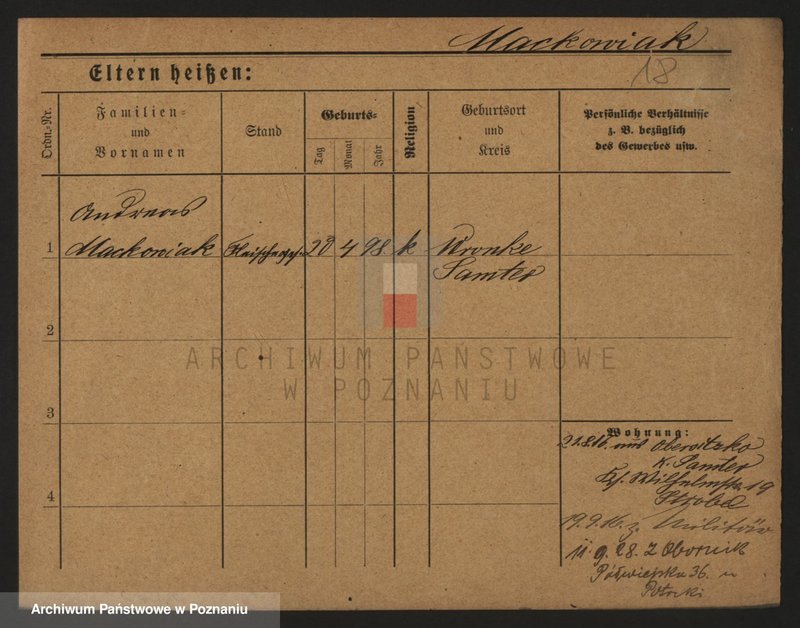 Mackowiak
18
Eltern heißen:
Ordn.-Nr.
Familien-
und
Vornamen
Stand
Geburts-
Tag
Monat
Jahr
Religion
Geburtsort
und
Kreis
Persönliche Verhältnisse
z. B. bezüglich
des Gewerbes usw.
Andreas
1 Mackowiak Fleischerges. 20 4 98. k Wronke
Samter
2
ARCHIWUM PAŃSTWOWE
W POZNANIU
3
Wohnung:
21.8.16. aus Obersitzko
K. Samter
Wilhelmstr. 19
Strobel
4
19.9.16. z. Militär
11.9.28. z Obornik
Półwiejska 36.
Potocki
Archiwum Państwowe w Poznaniu